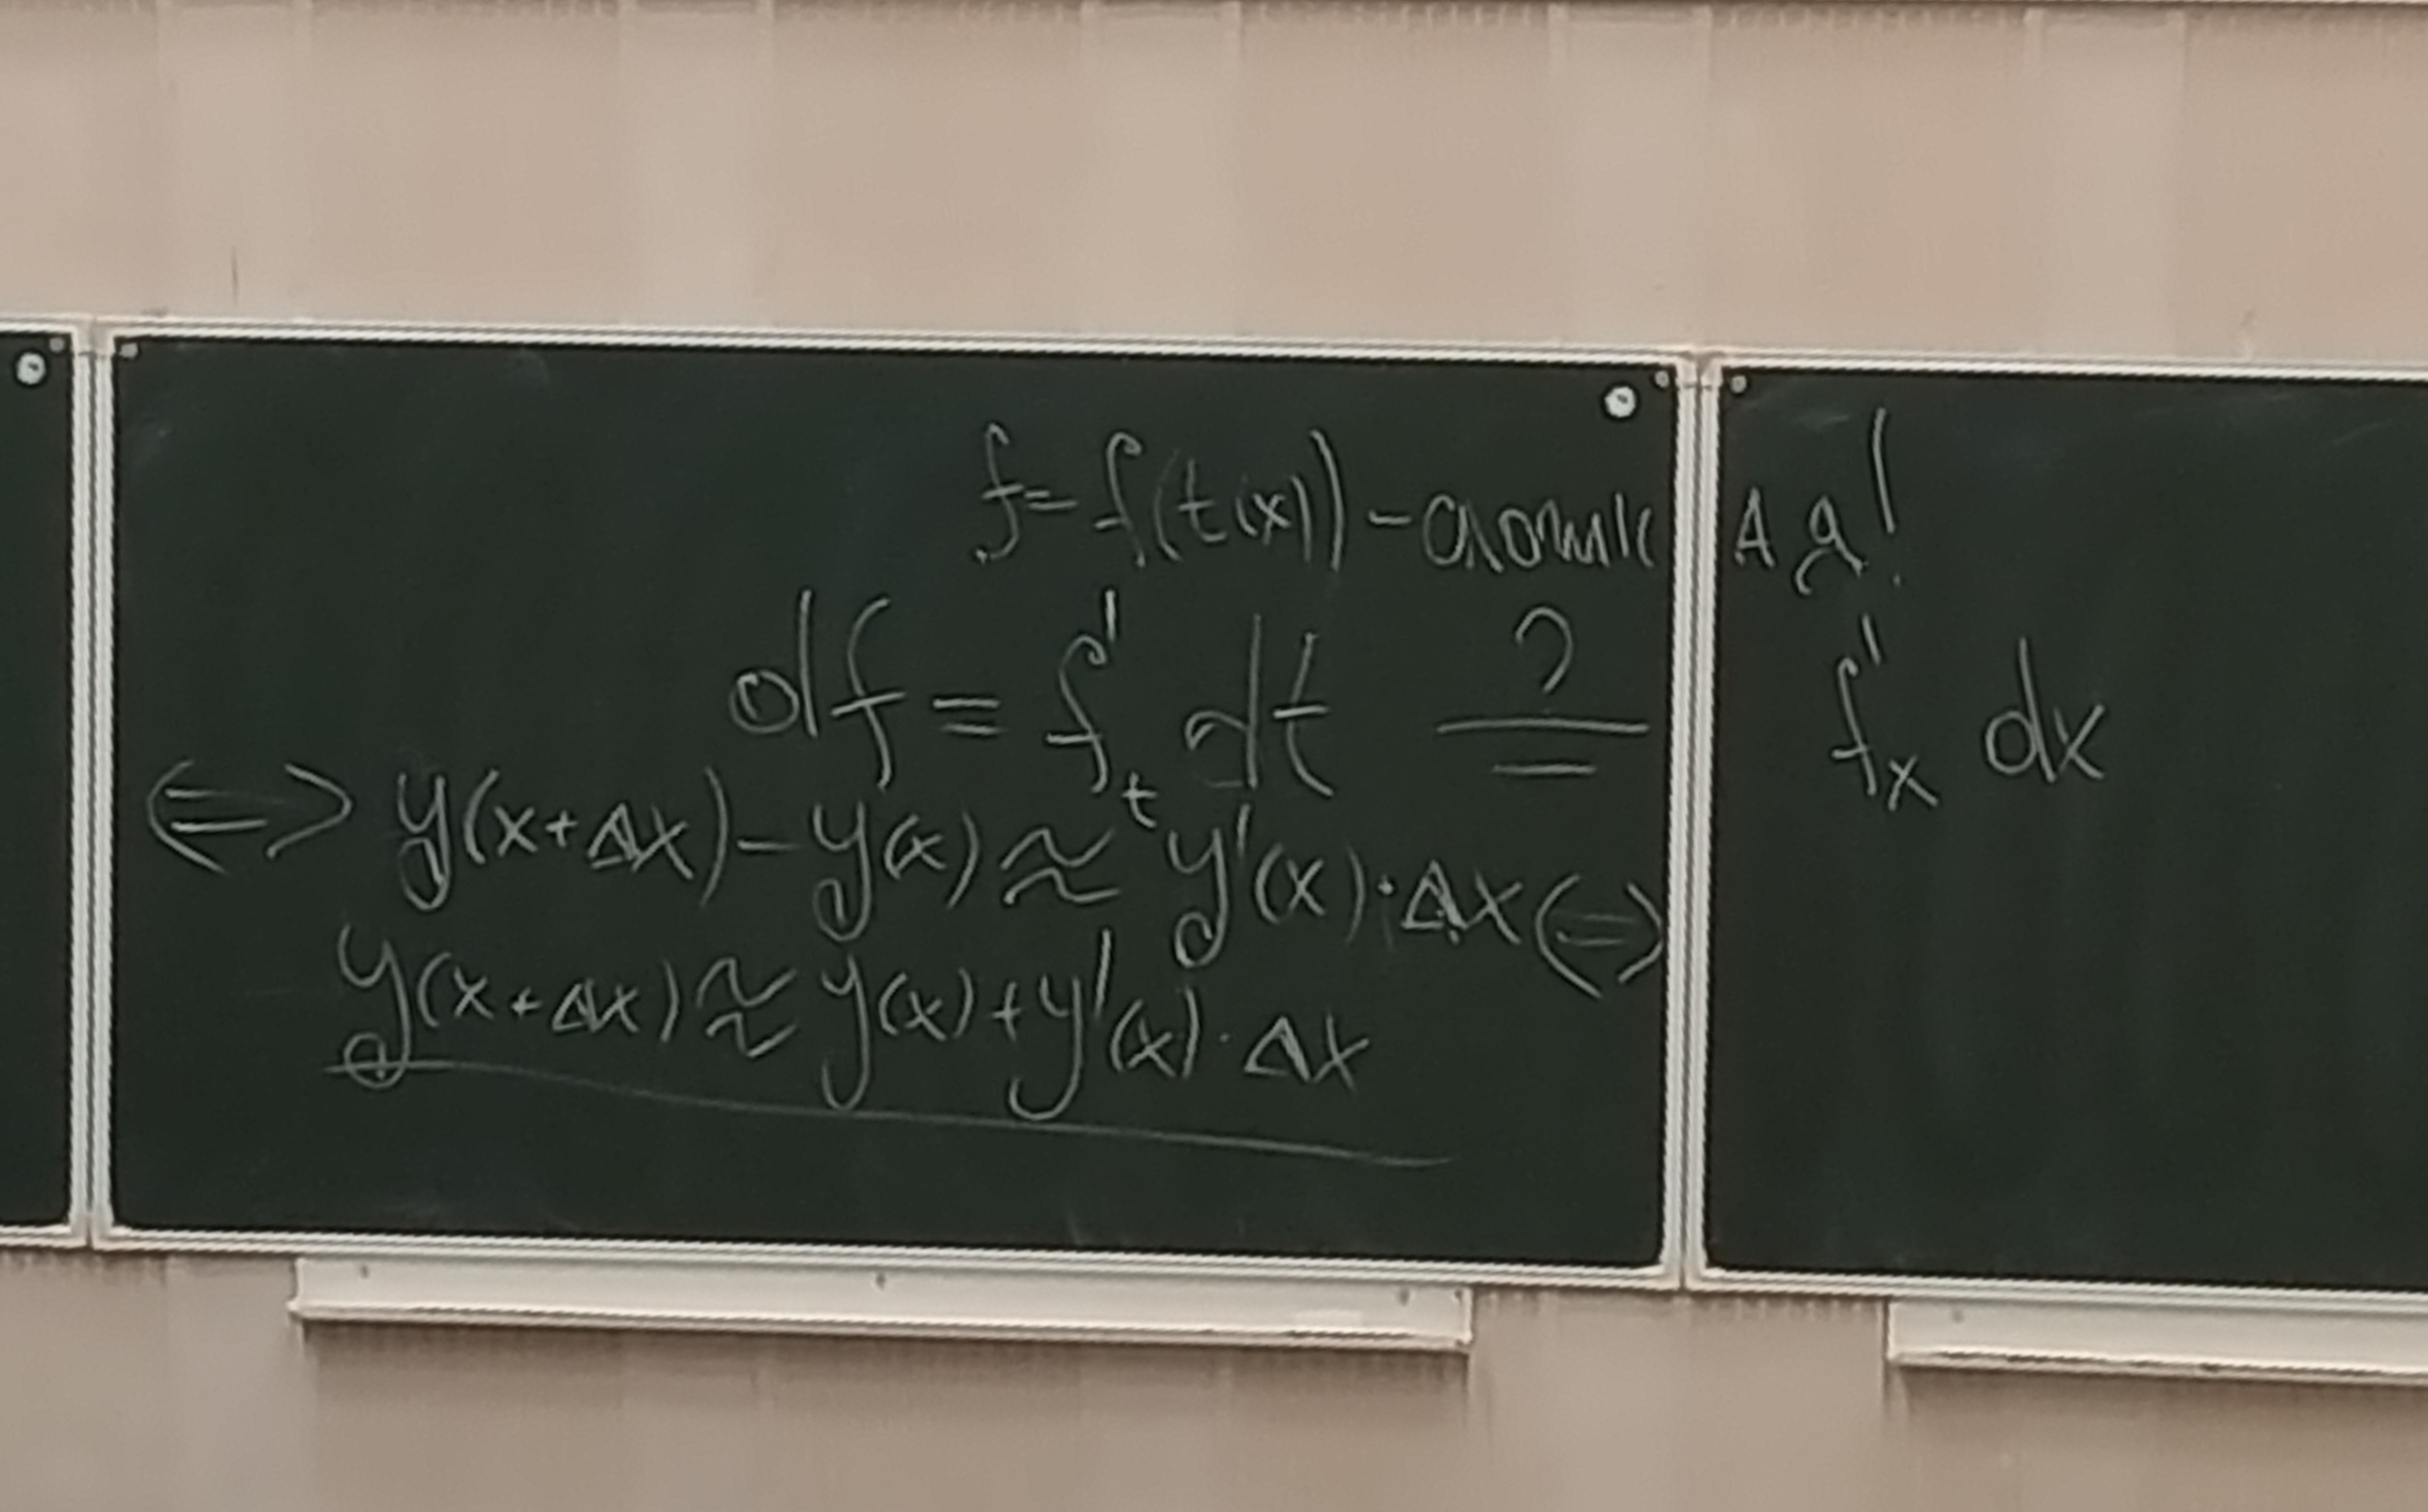 f = f(t(x)) - сложная!
df = f'ₜ dt ?= f'ₓ dx
⇔ y(x+Δx) - y(x) ≈ y'(x)·Δx ⇔
y(x+Δx) ≈ y(x) + y'(x)·Δx